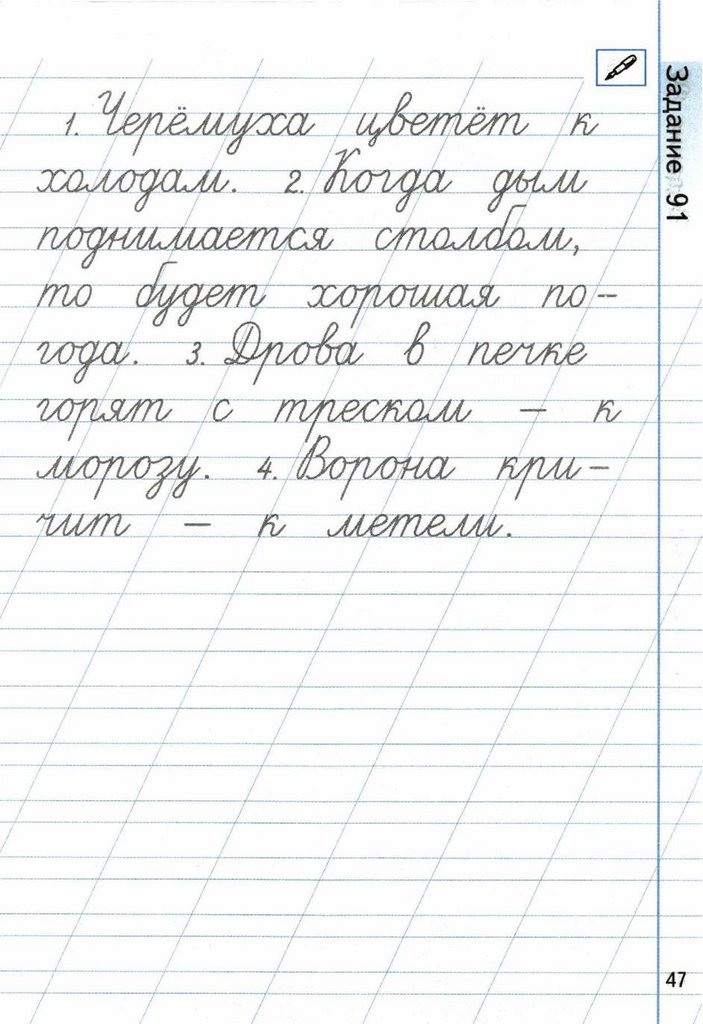 Задание 91
1. Черёмуха цветёт к
холодам. 2. Когда дым
поднимается столбом,
то будет хорошая по-
года. 3. Дрова в печке
горят с треском - к
морозу. 4. Ворона кри-
чит - к метели.
47